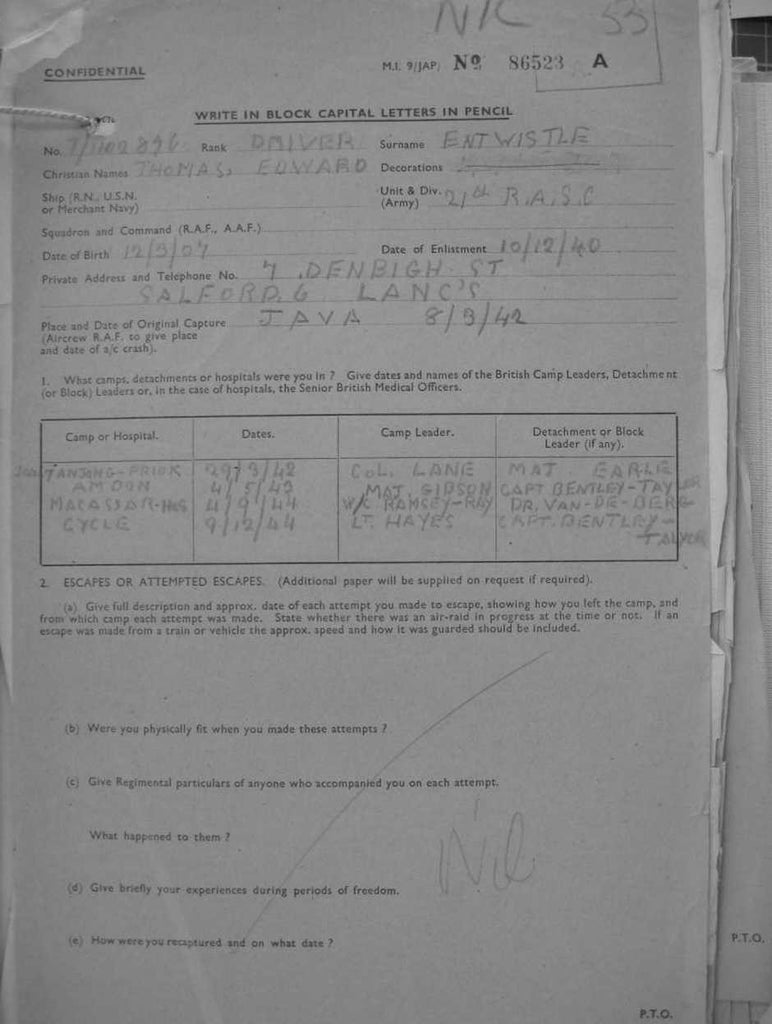 NIL 53
CONFIDENTIAL M.I. 9/JAP/ No 86523 A
WRITE IN BLOCK CAPITAL LETTERS IN PENCIL
No. Rank DRIVER Surname ENTWISTLE
Christian Names THOMAS, EDWARD Decorations
Ship (R.N., U.S.N. or Merchant Navy) Unit & Div. (Army) 21st R.A.S.C
Squadron and Command (R.A.F., A.A.F.)
Date of Birth 12/3/07 Date of Enlistment 10/12/40
Private Address and Telephone No. 7, DENBIGH ST
SALFORD. 6 LANC'S
Place and Date of Original Capture JAVA 8/3/42
(Aircrew R.A.F. to give place
and date of a/c crash).
1. What camps, detachments or hospitals were you in ? Give dates and names of the British Camp Leaders, Detachment
(or Block) Leaders or, in the case of hospitals, the Senior British Medical Officers.
Camp or Hospital. Dates. Camp Leader. Detachment or Block
Leader (if any).
TANJONG-PRIOK 29/3/42 COL. LANE MAJ. EARLE
AMBON 4/5/43 MAJ. GIBSON CAPT BENTLEY-TAYLOR
MACASSAR-HOS 4/9/44 W/C RAMSEY-RAY DR. VAN-DE-BERG
CYCLE 9/12/44 LT. HAYES CAPT. BENTLEY-
TALYOR
2. ESCAPES OR ATTEMPTED ESCAPES. (Additional paper will be supplied on request if required).
(a) Give full description and approx. date of each attempt you made to escape, showing how you left the camp, and
from which camp each attempt was made. State whether there was an air-raid in progress at the time or not. If an
escape was made from a train or vehicle the approx. speed and how it was guarded should be included.
(b) Were you physically fit when you made these attempts ?
(c) Give Regimental particulars of anyone who accompanied you on each attempt.
What happened to them ?
Nil
(d) Give briefly your experiences during periods of freedom.
(e) How were you recaptured and on what date ?
P.T.O.
P.T.O.